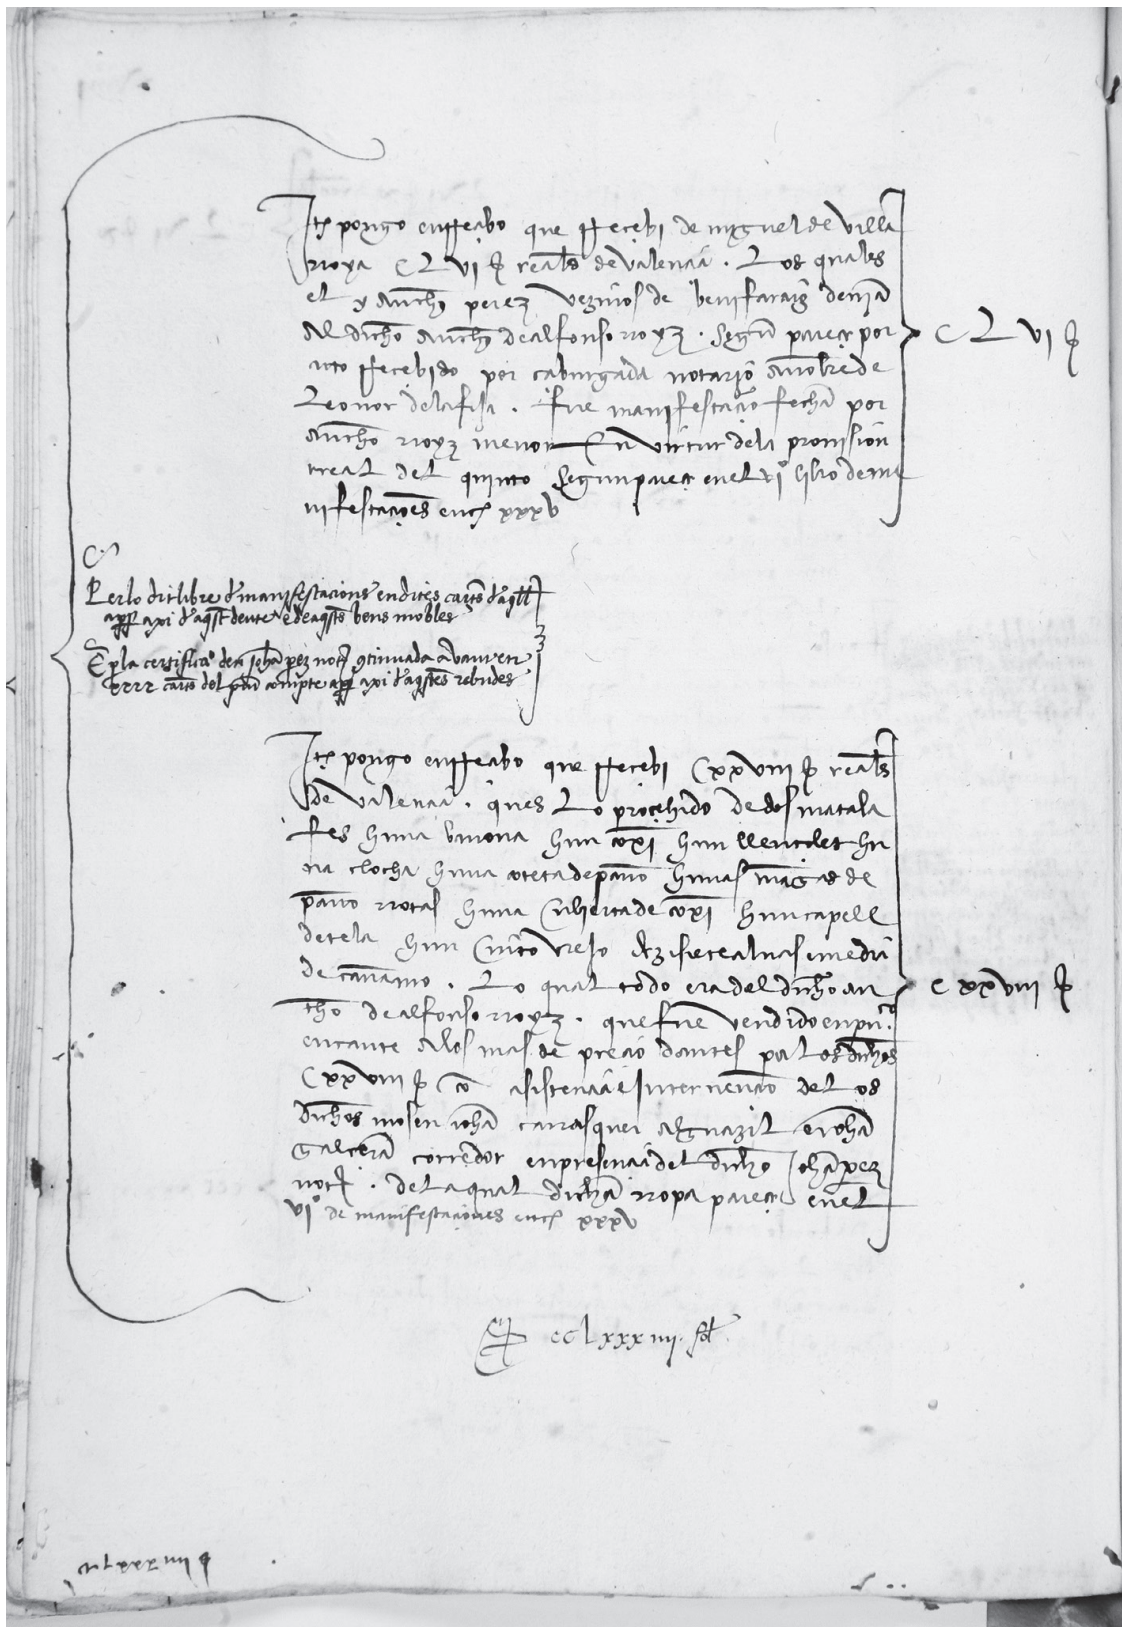 Itē pongo en rreçebo que rreçebi de miguel de villa
rroya CLVI ss reals̄ de valençia . Los quales
el y anchō perez vezinos de benifaraig deviā
al dichō anchō de alfonso rroyz . Segū pareçe por
acto rreçebido por notario a nobre de
Leonor . fue manifestaçiō fechā por
anchō rroyz menor En virtut de la provision
rreal del quinto Segun pareçe en el viº libro de ma
nifestaçioēs en cē xxxv
CLVI ss
Per lo dit libre d manifestacions en dites cartēs d aqll
app̄ axi d aqst̄ deute e de aqsts̄ bens mobles
E p la certificaº den johā perez notʳ 9tinuada avant en
xxxx cartēs del pn̄t compte app̄ axi d aqstes̄ rebudes
Itē pongo en rreçebo que rreçebi CXXVIII ss reals̄
de valençia . ques Lo proçehido de dos matala
fes huna hun coxī hun llençolet hu
na clocha huna de pano hunas māgas de
pano rrotas huna cuberta de coxī hun capell
de tela hun dezisiete alnas i media
de canamo . Lo qual todo era del dichō an
chō de alfonso rroyz . que fue vendido en puᶜº
encante a los mas de preçio dantes por los dichos
CXXVIII ss cō asistençia e intervençiō de los
dichōs mosen johā carrasquer alguazil e johā
galcerā corredor en presençia del dichō Johā perez
notʳ . de la qual dichā rropa pareçe en el
viº de manifestaçiones en cē xxxv
C XXVIII ss
CCLxxxiiii . sol̄
ccLxxxiiii ss